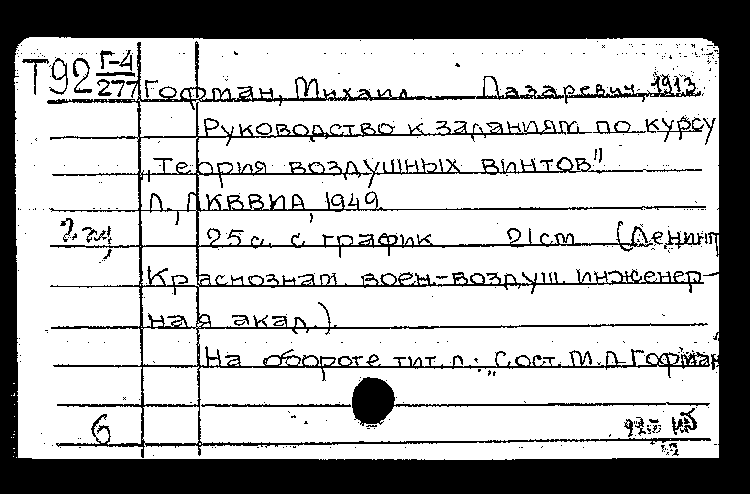 Т92 Г-4
277 Гофман, Михаил Лазаревич, 1913
Руководство к заданиям по курсу
„Теория воздушных винтов".
Л., ЛКВВИА, 1949.
25 с. с график 21cm (Ленингр
Краснознам. воен-воздуш. инженер-
ная акад.).
На обороте тит. л.: „Сост. М.Л. Гофман
6